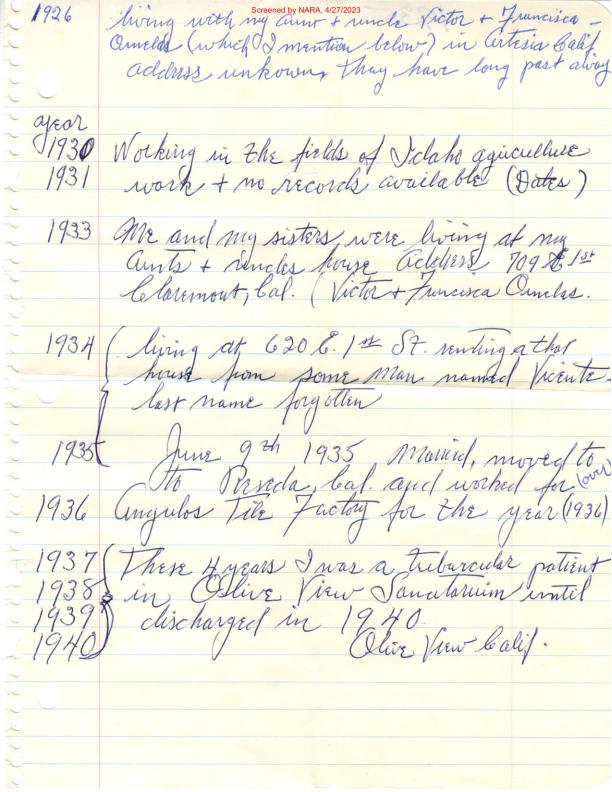 Screened by NARA, 4/27/2023
1926 living with my aunt + uncle Victor + Francisca -
Ornelas (which I mention below) in Artesia Calif
address unkown, they have long past away
year
1930 Working in the fields of Idaho agriculture
1931 work + no records available (Dates)
1933 Me and my sisters were living at my
Aunts + uncles house Address 709 E 1st
Claremont, Cal. (Victor + Francisca Ornelas.
1934 living at 620 E. 1st St. renting a that
house from some man named Vicente -
last name forgotten
1935 June 9th 1935 Married, moved to
to Reseda, Cal. and worked for (over)
1936 Angulos Tile Factory for the year (1936)
1937 These 4 years I was a tubarcular patient
1938 in Olive View Sanatarium until
1939 discharged in 1940.
1940 Olive View Calif.